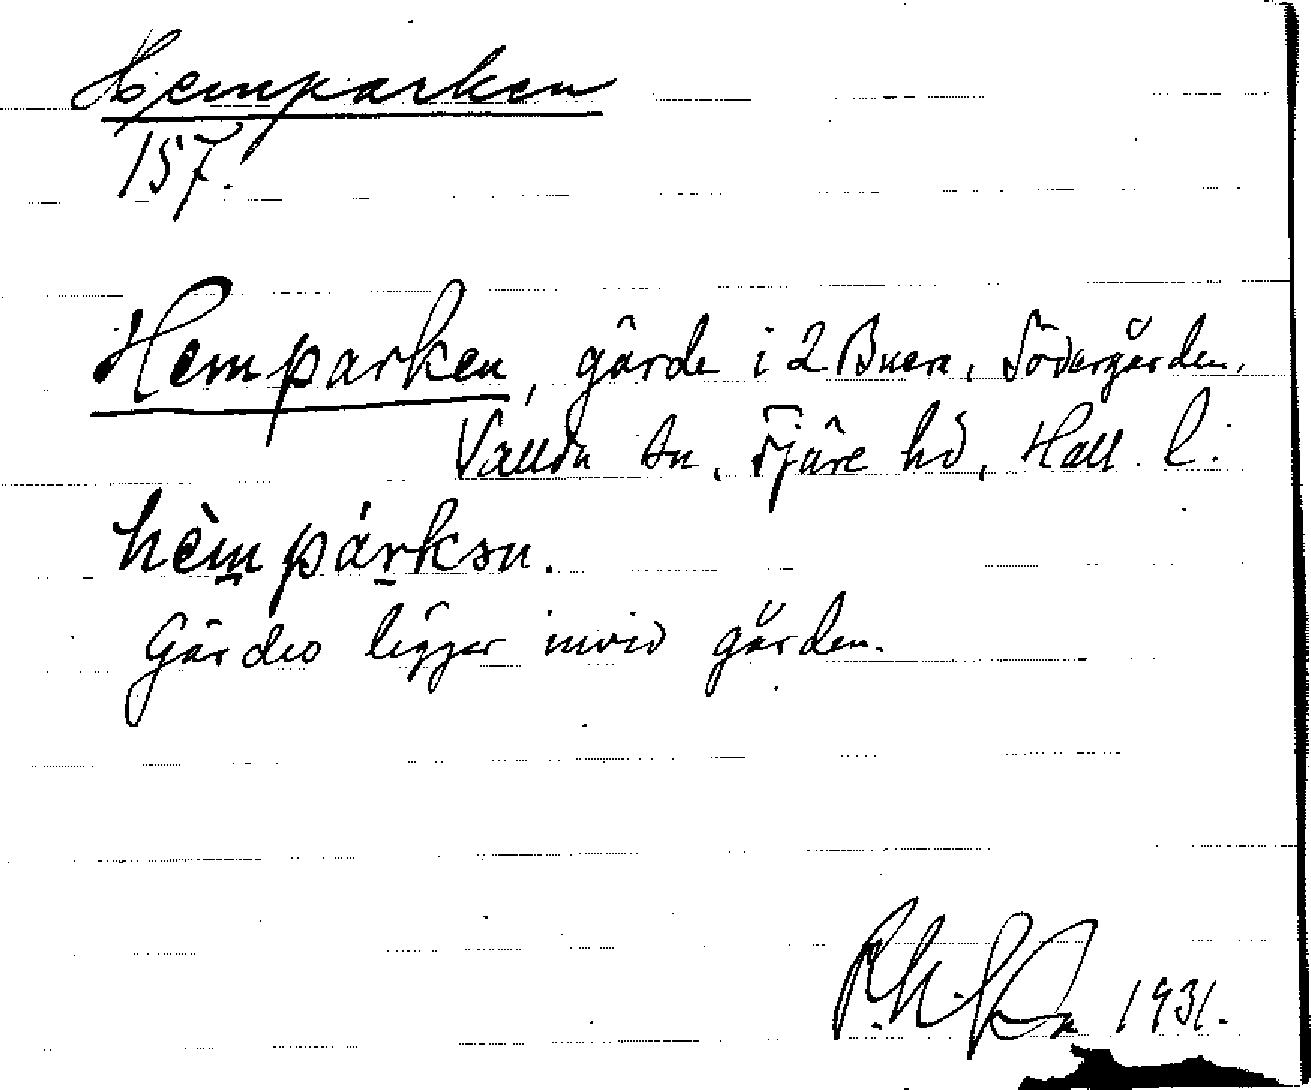 Hemparken
157.
Hemparken, gärde i 2 Buera, Södergården,
Vallda sn, Fjäre hd, Hall. l.
hèmpárkən.
Gärdes ligger invid gården.
1931.